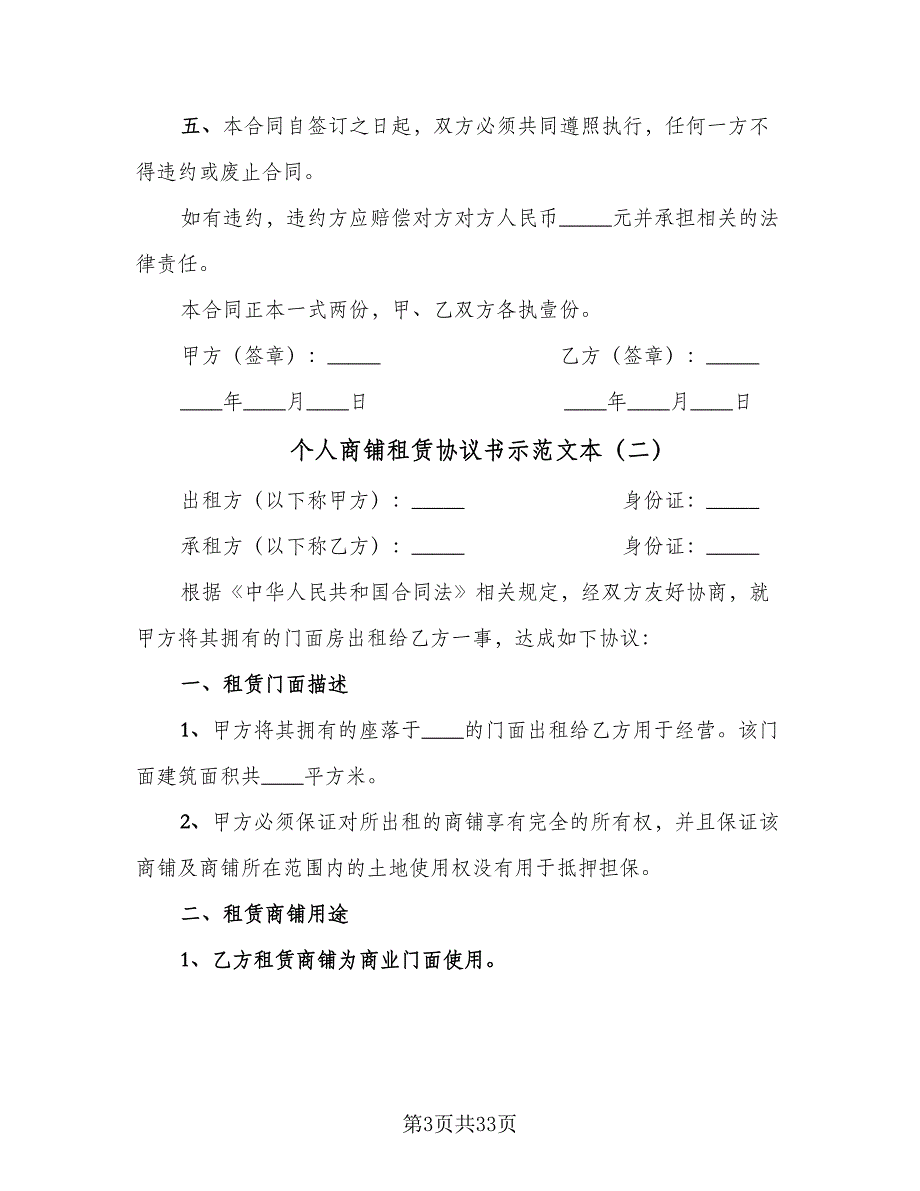 五、本合同自签订之日起，双方必须共同遵照执行，任何一方不
得违约或废止合同。
如有违约，违约方应赔偿对方对方人民币_____元并承担相关的法
律责任。
本合同正本一式两份，甲、乙双方各执壹份。
甲方（签章）：_____ 乙方（签章）：_____
____年____月____日 ____年____月____日
个人商铺租赁协议书示范文本（二）
出租方（以下称甲方）：_____ 身份证：_____
承租方（以下称乙方）：_____ 身份证：_____
根据《中华人民共和国合同法》相关规定，经双方友好协商，就
甲方将其拥有的门面房出租给乙方一事，达成如下协议：
一、租赁门面描述
1、甲方将其拥有的座落于____的门面出租给乙方用于经营。该门
面建筑面积共____平方米。
2、甲方必须保证对所出租的商铺享有完全的所有权，并且保证该
商铺及商铺所在范围内的土地使用权没有用于抵押担保。
二、租赁商铺用途
1、乙方租赁商铺为商业门面使用。
第3页共33页